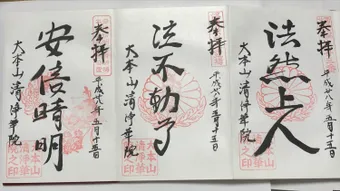 奉拝
法然上人
大本山清浄華院
平成廿八年五月十五日
奉拝
泣不動尊
大本山清浄華院
平成廿八年五月十五日
奉拝
安倍晴明
大本山清浄華院
平成廿八年五月十五日